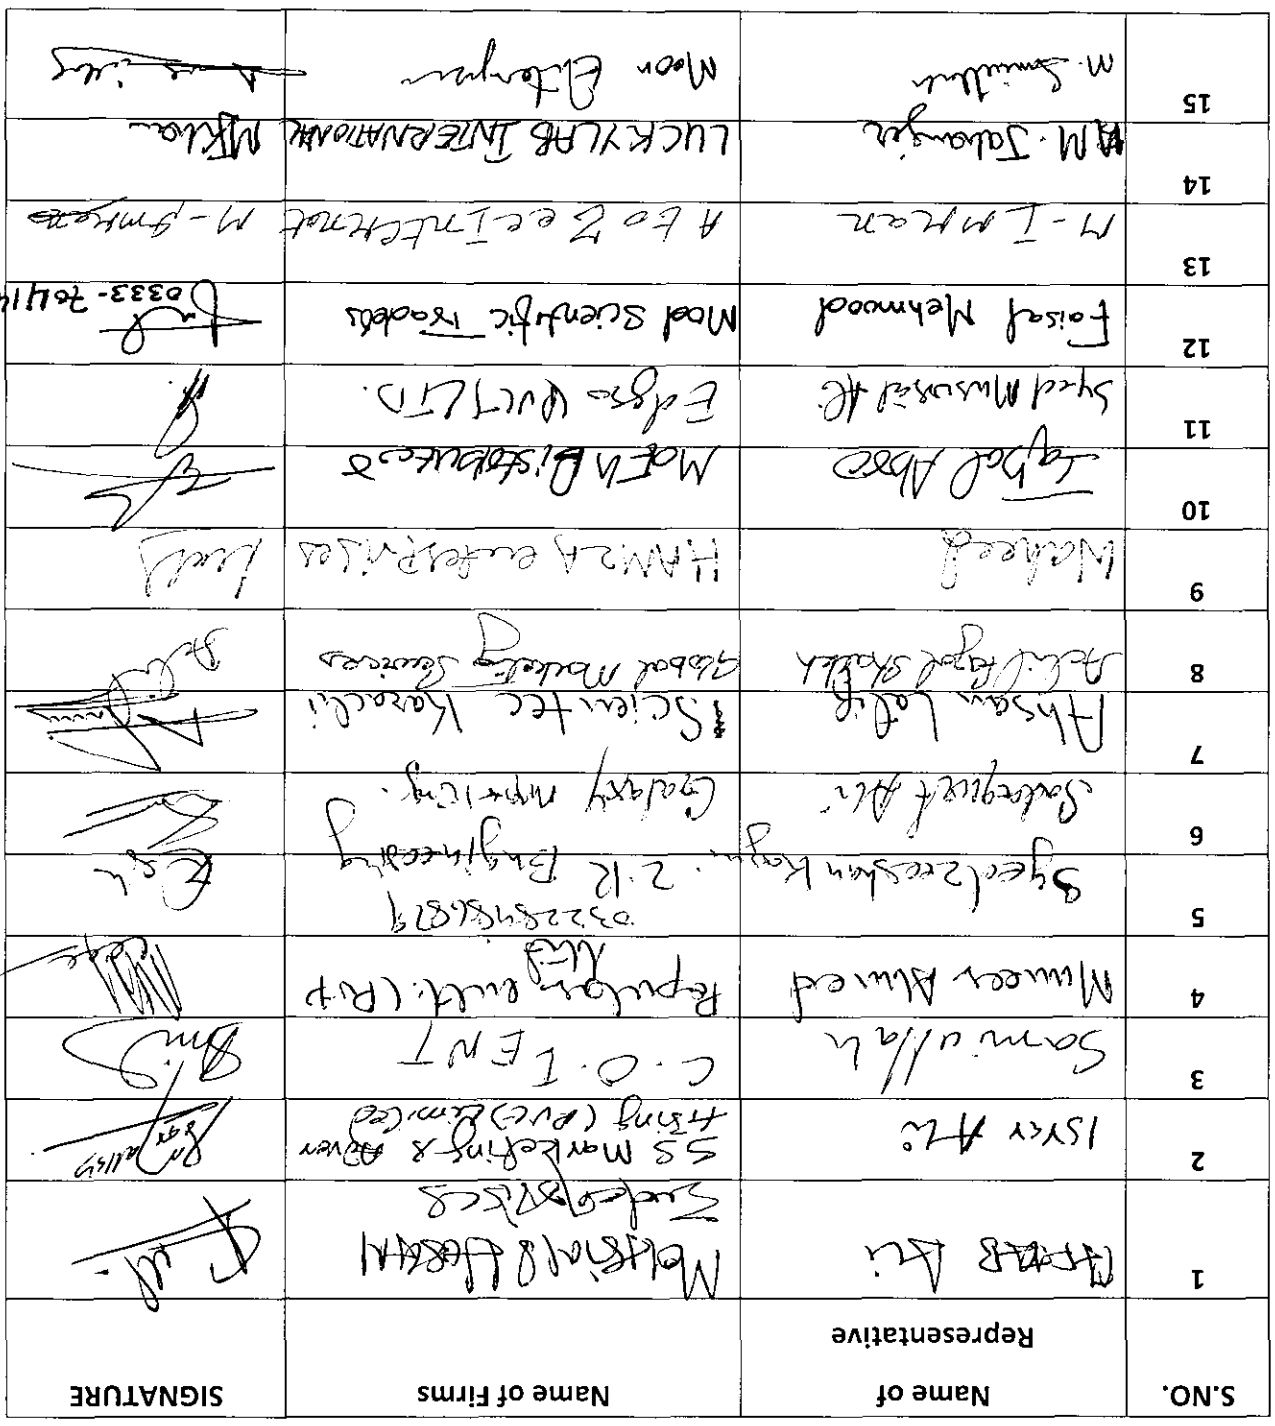 S.NO. Name of Representative Name of Firms SIGNATURE
1 Ali MOHSIN & HASSAN
Enterprises
2 ISrar Ali SS Marketing & Adver
tising (Pvt) Limited
3 Samiullah C.O.I ENT
4 Muneer Ahmed Popular (Pvt
Ltd
5 Syed Zeeshan Kazmi. Z.K Engineering
03228486879
6 Sadaquet Ali Galaxy
7 Ahsan Latif Scientec Karachi
8 Adil Fazal Shaikh Global Marketing Services
9 Waheed HAMZA enterprises
10 Iqbal Abro Distributors
11 Syed Ali Edgro (PVT) LTD.
12 Faisal Mehmood Mod Scientific Traders 0333-704114
13 M-Imran A to Zee Internat M-Imran
14 M. Jahangir LUCKYLAB INTERNATIONAL MJKhan
15 M. Moon Enterprise